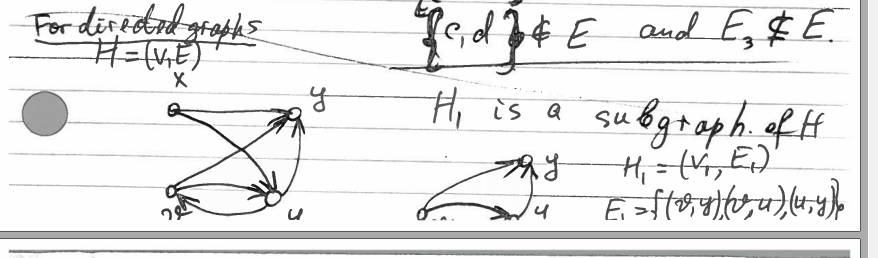 For directed graphs
H = (V, E)
{c, d} ∉ E and E₃ ⊄ E.
x
y
v
u
H₁ is a subgraph of H
H₁ = (V₁, E₁)
E₁ = {(v, y), (v, u), (u, y)}
y
u